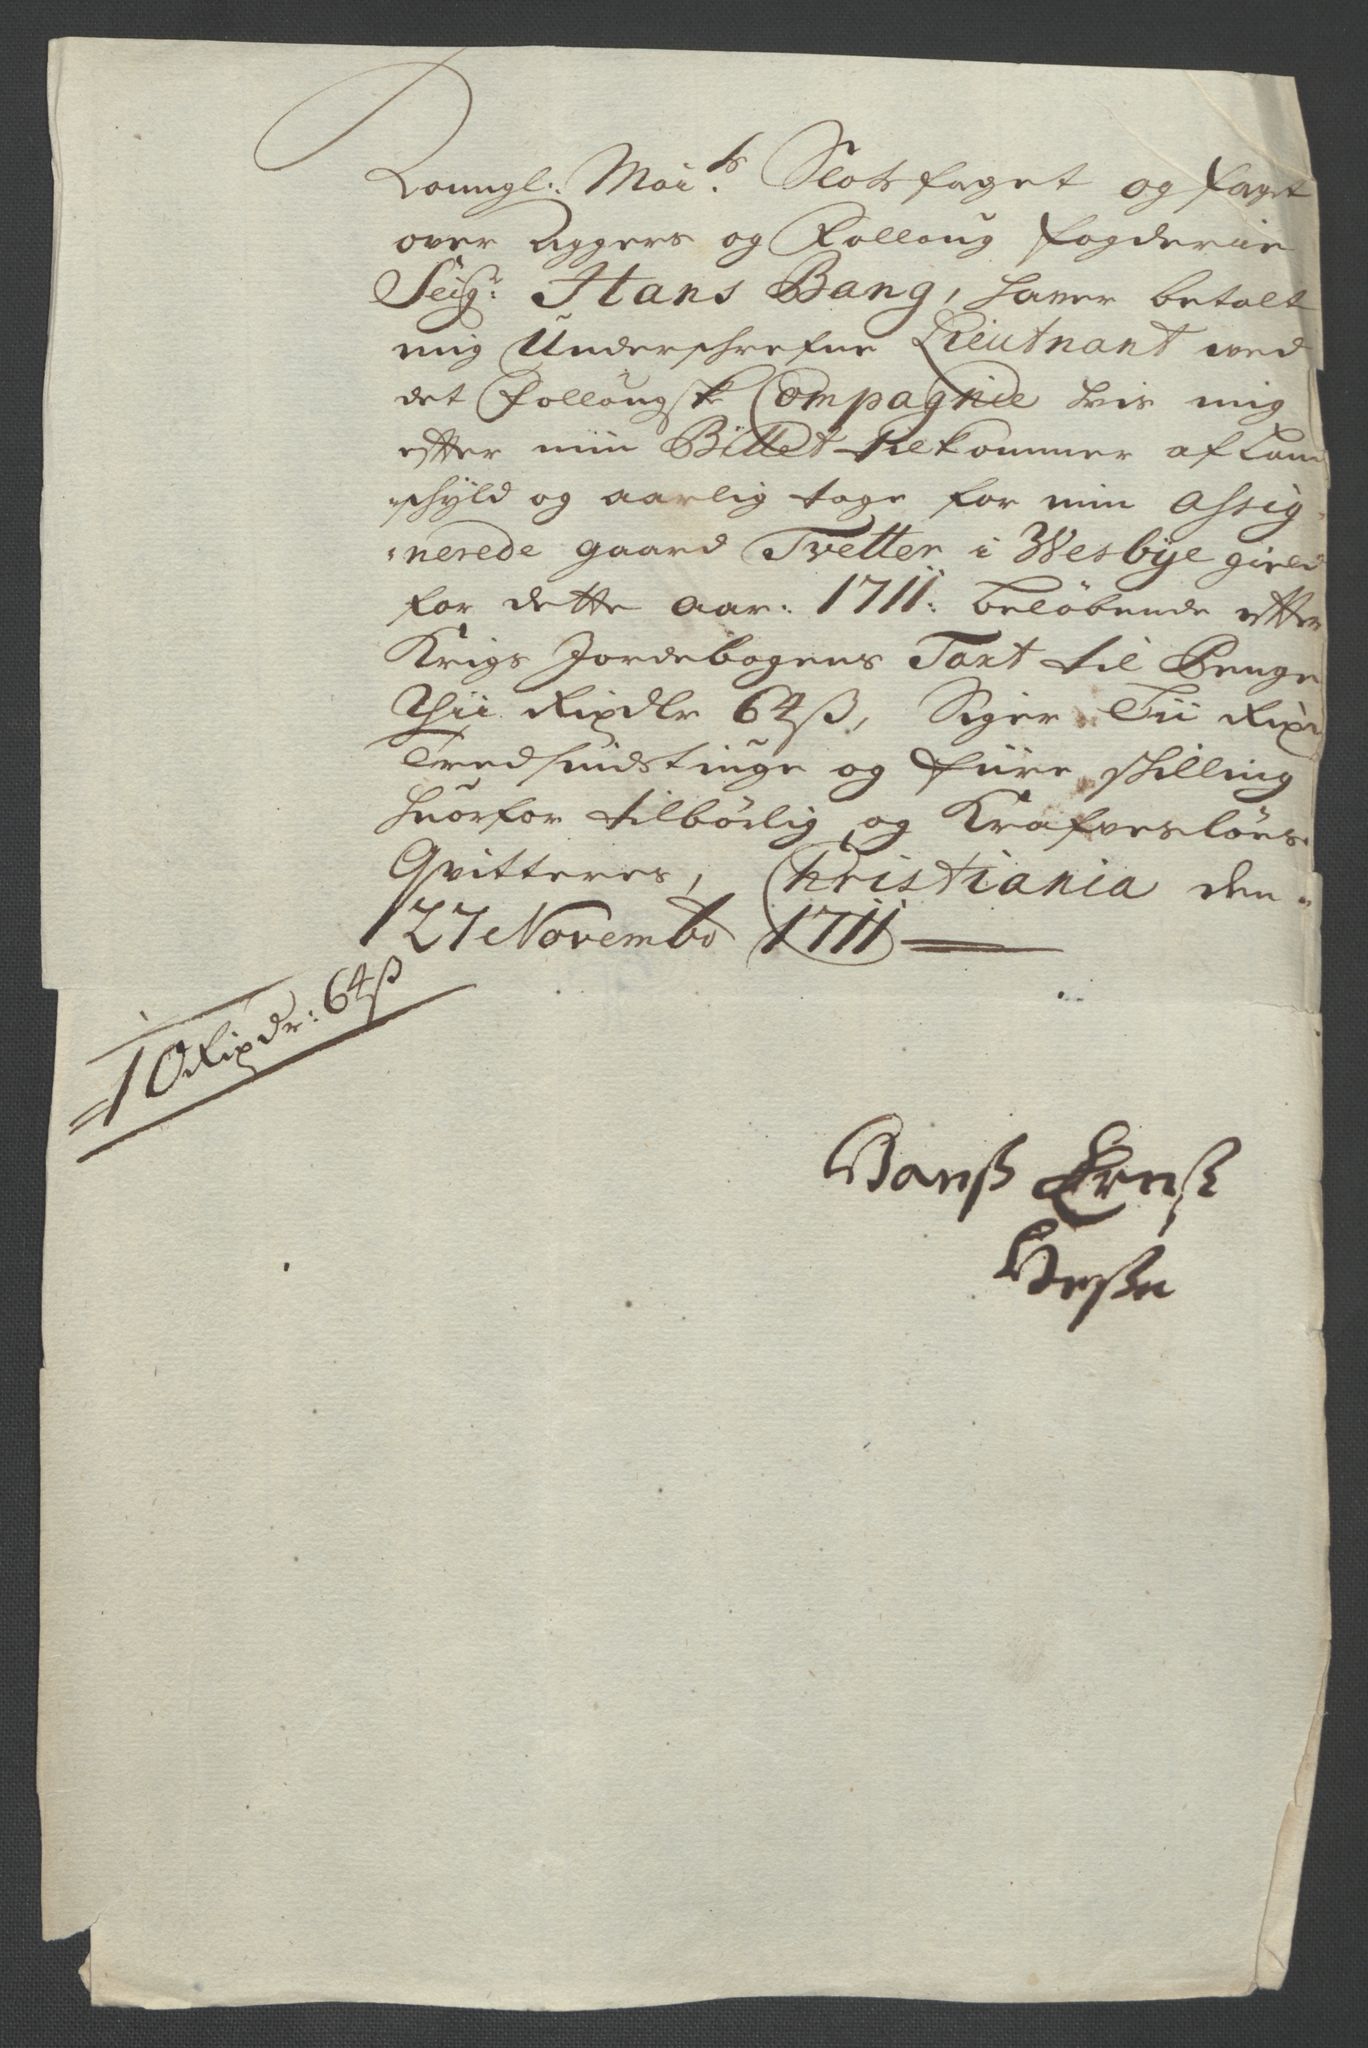 Kongl: Mai.ts Slots foget og foget
over Aggers og Folloug fogderie
Seigr: Hans Bang, haver betalt
mig Underschrefne Lieutnant ved
det Follougske Compagnie hvis mig
efter min Billet tilkommer af Land
schyld og aarlig tage for min Assig-
nerede gaard Tvetter i Wesbye gield
for dette aar: 1711: beløbende efter
Krigs Jordebogens Taxt til Penge
Thii Rixdlr 64ß, Siger Tii Rixd
Tredsindstiuge og fiire skilling
huorfor tilbörlig og Krafvesløes
Qvitteres, Christiania den
27 Novembr 1711
10 Rixdr: 64ß
Hanß Ernst
Heße